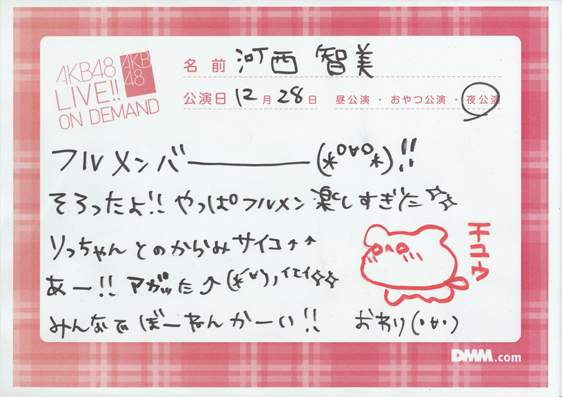 AKB48
LIVE!!
ON DEMAND
AKB
48
名前 河西 智美
公演日 12月28日 昼公演・おやつ公演・夜公演
フルメンバーーーーー(*°∀°*)!!
そろったよ!! やっぱフルメン 楽しすぎた☆☆
りっちゃん とのからみサイコ↑↑
あー!! アガッた⤴(*´∀`)ノイエイ☆☆
みんなでぼーねんかーい!! おわり(・∀・)
チユウ
DMM.com